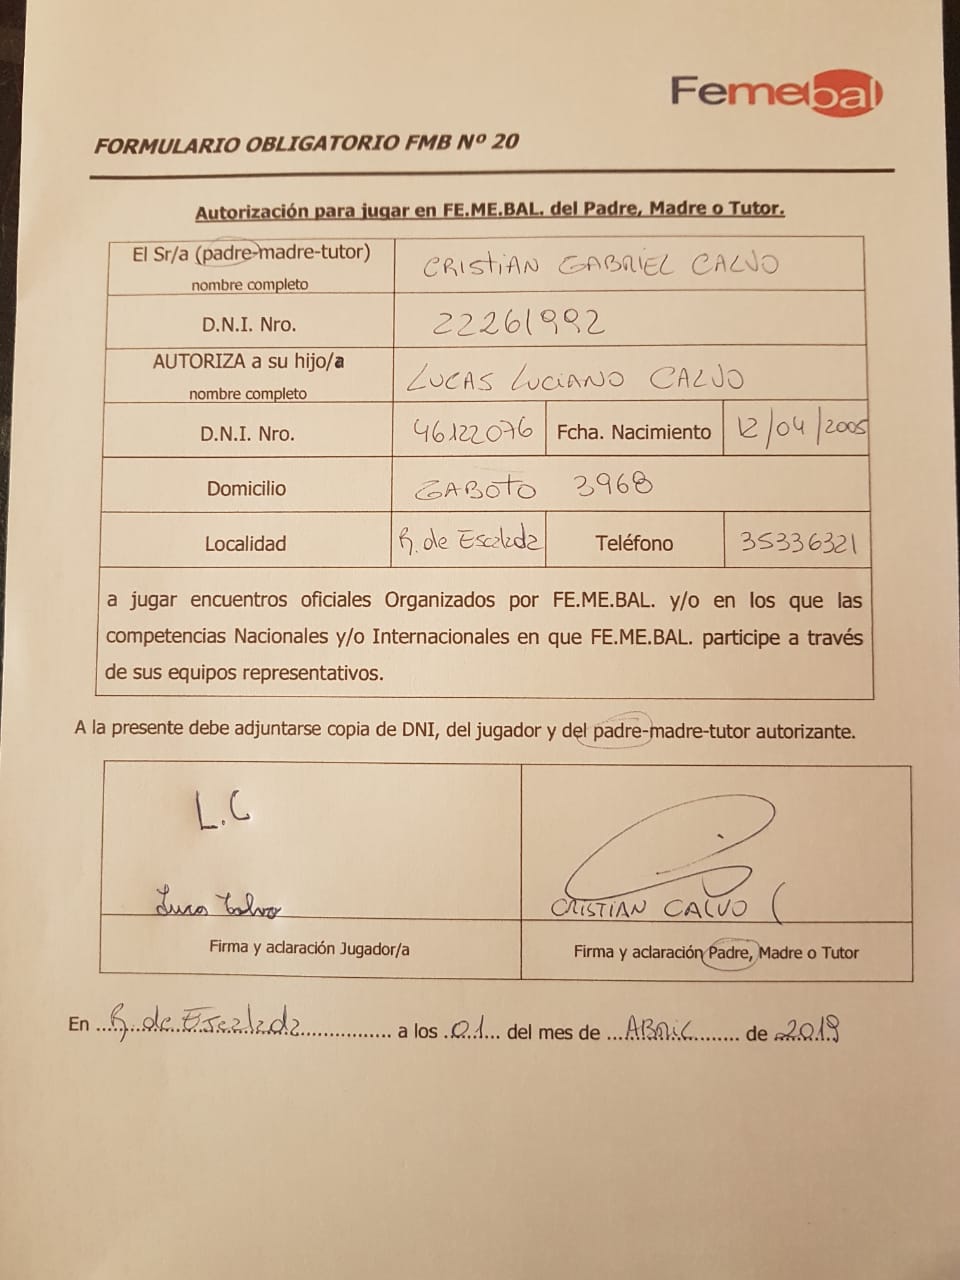 Femebal
FORMULARIO OBLIGATORIO FMB Nº 20
Autorización para jugar en FE.ME.BAL. del Padre, Madre o Tutor.
El Sr/a (padre-madre-tutor)
nombre completo
CRISTIAN GABRIEL CALVO
D.N.I. Nro.
22261992
AUTORIZA a su hijo/a
nombre completo
LUCAS LUCIANO CALVO
D.N.I. Nro.
46122076
Fcha. Nacimiento
12/04/2005
Domicilio
GABOTO 3968
Localidad
R. de Escalada
Teléfono
35336321
a jugar encuentros oficiales Organizados por FE.ME.BAL. y/o en los que las
competencias Nacionales y/o Internacionales en que FE.ME.BAL. participe a través
de sus equipos representativos.
A la presente debe adjuntarse copia de DNI, del jugador y del padre-madre-tutor autorizante.
L.C
Lucas Calvo
CRISTIAN CALVO
Firma y aclaración Jugador/a
Firma y aclaración Padre, Madre o Tutor
En ...R. de Escalada................ a los .01... del mes de ...ABRIL........ de 2019